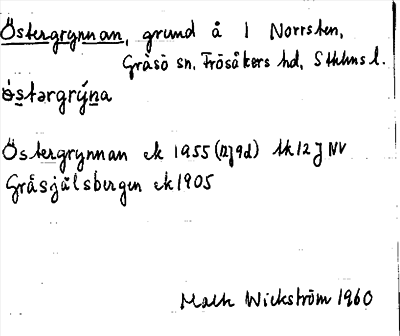 Östergrynnan, grund å 1 Norrsten,
Gräsö sn. Frösåkers hd, Sthlms l.
ö́stərgrýna
Östergrynnan ek 1955 (12J9d) tk 12 J NV
Gråsjälsbergen ek 1905
Wickström 1960